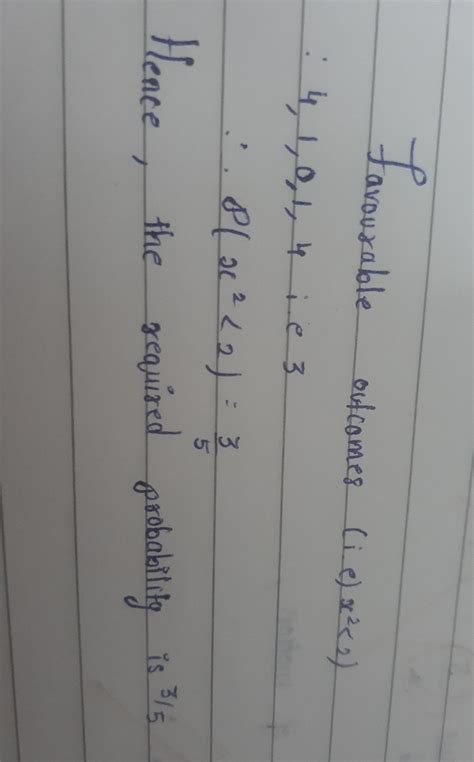 Favourable outcomes (i e) x² < 2)
∴ 4, 1, 0, 1, 4 i e 3
∴ P( x² < 2) = 3/5
Hence, the required probability is 3/5